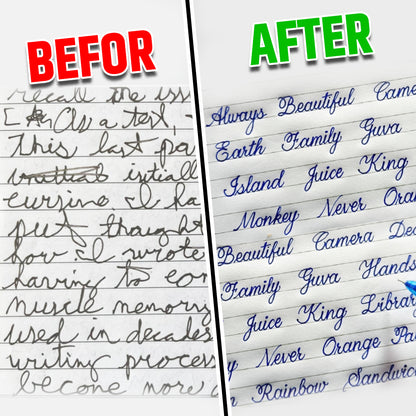 BEFOR
recall the iss
[ As a test, -
This last pa
initially
cursive I ha
put thought
how I wrote
having to con
muscle memory
used in decades
writing process
become more
AFTER
Always Beautiful Came
Earth Family Guva
Island Juice King
Monkey Never Oran
Beautiful Camera Dea
Family Guva Hands
Juice King Library
y Never Orange Pa
n Rainbow Sandwic